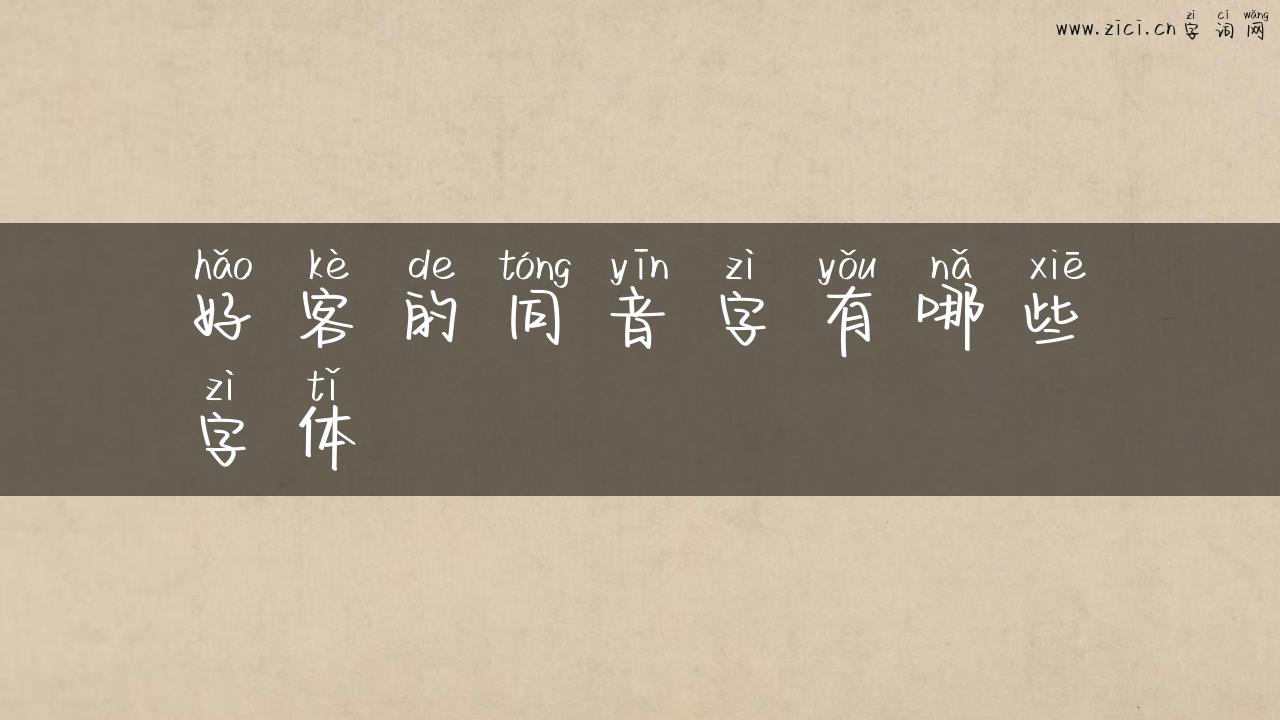 zì cí wǎng
www.zici.cn字词网
hǎo kè de tóng yīn zì yǒu nǎ xiē
好客的同音字有哪些
zì tǐ
字体